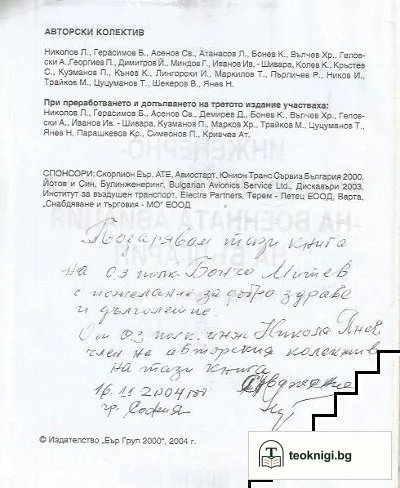 АВТОРСКИ КОЛЕКТИВ
Николов Л., Герасимов Б., Асенов Св., Атанасов Л., Бонев К., Вълчев Хр., Гелов-
ски А., Георгиев П., Димитров Й., Миндов Г., Иванов Ив. - Шивара, Колев К., Кръстев
С., Кузманов П., Кънев К., Лингорски И., Маркилов Т., Пърличев Р., Ников И.,
Трайков М., Цуцуманов Т., Шекеров В., Янев Н.
При преработването и допълването на третото издание участваха:
Николов Л., Герасимов Б., Асенов Св., Демирев Д., Бонев К., Вълчев Хр., Гелов-
ски А., Иванов Ив. - Шивара, Кузманов П., Марков Хр., Трайков М., Цуцуманов Т.,
Янев Н., Парашкевов Кр., Симеонов П., Кривчев Ат.
СПОНСОРИ: Скорпион Еър, АТЕ, Авиостарт, Юнион Транс Сървиз България 2000,
Йотов и Син, Булинженеринг, Bulgarian Avionics Service Ltd., Дискавъри 2003,
Институт за въздушен транспорт, Electra Partners, Терем - Летец ЕООД, Варта,
„Снабдяване и търговия - МО" ЕООД
Подарявам тази книга
на о.з полк. Бончо Митев
с пожелание за добро здраве
и дълголетие.
От о.з полк. инж Никола Янев
член на авторския колектив
на тази книга
16.11 2004 год
гр. София
С уважение
© Издателство „Еър Груп 2000", 2004 г.
teoknigi.bg